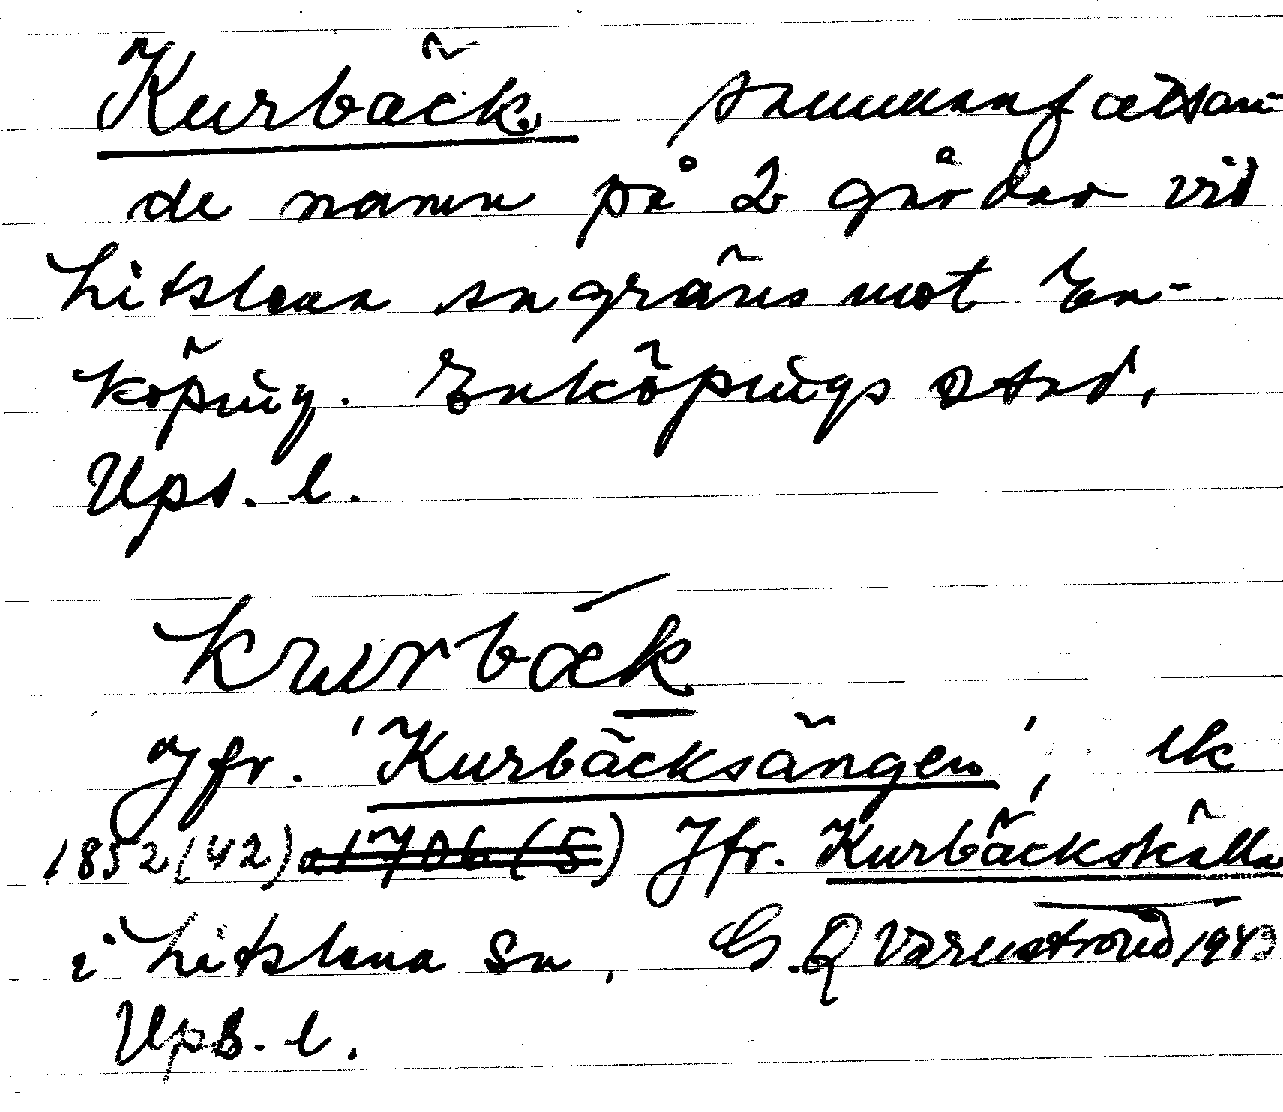 Kurbäck, sammanfattan-
de namn på 2 gårdar vid
Litslena sngräns mot En-
köping. Enköpings stad,
Upps. l.
kurbäk
Jfr. 'Kurbäcksängen', lk
1852 (42) a 1706 (5) Jfr. Kurbäckskälla
i Litslena sn, G. Q Varenstrand 1943
Upps. l.